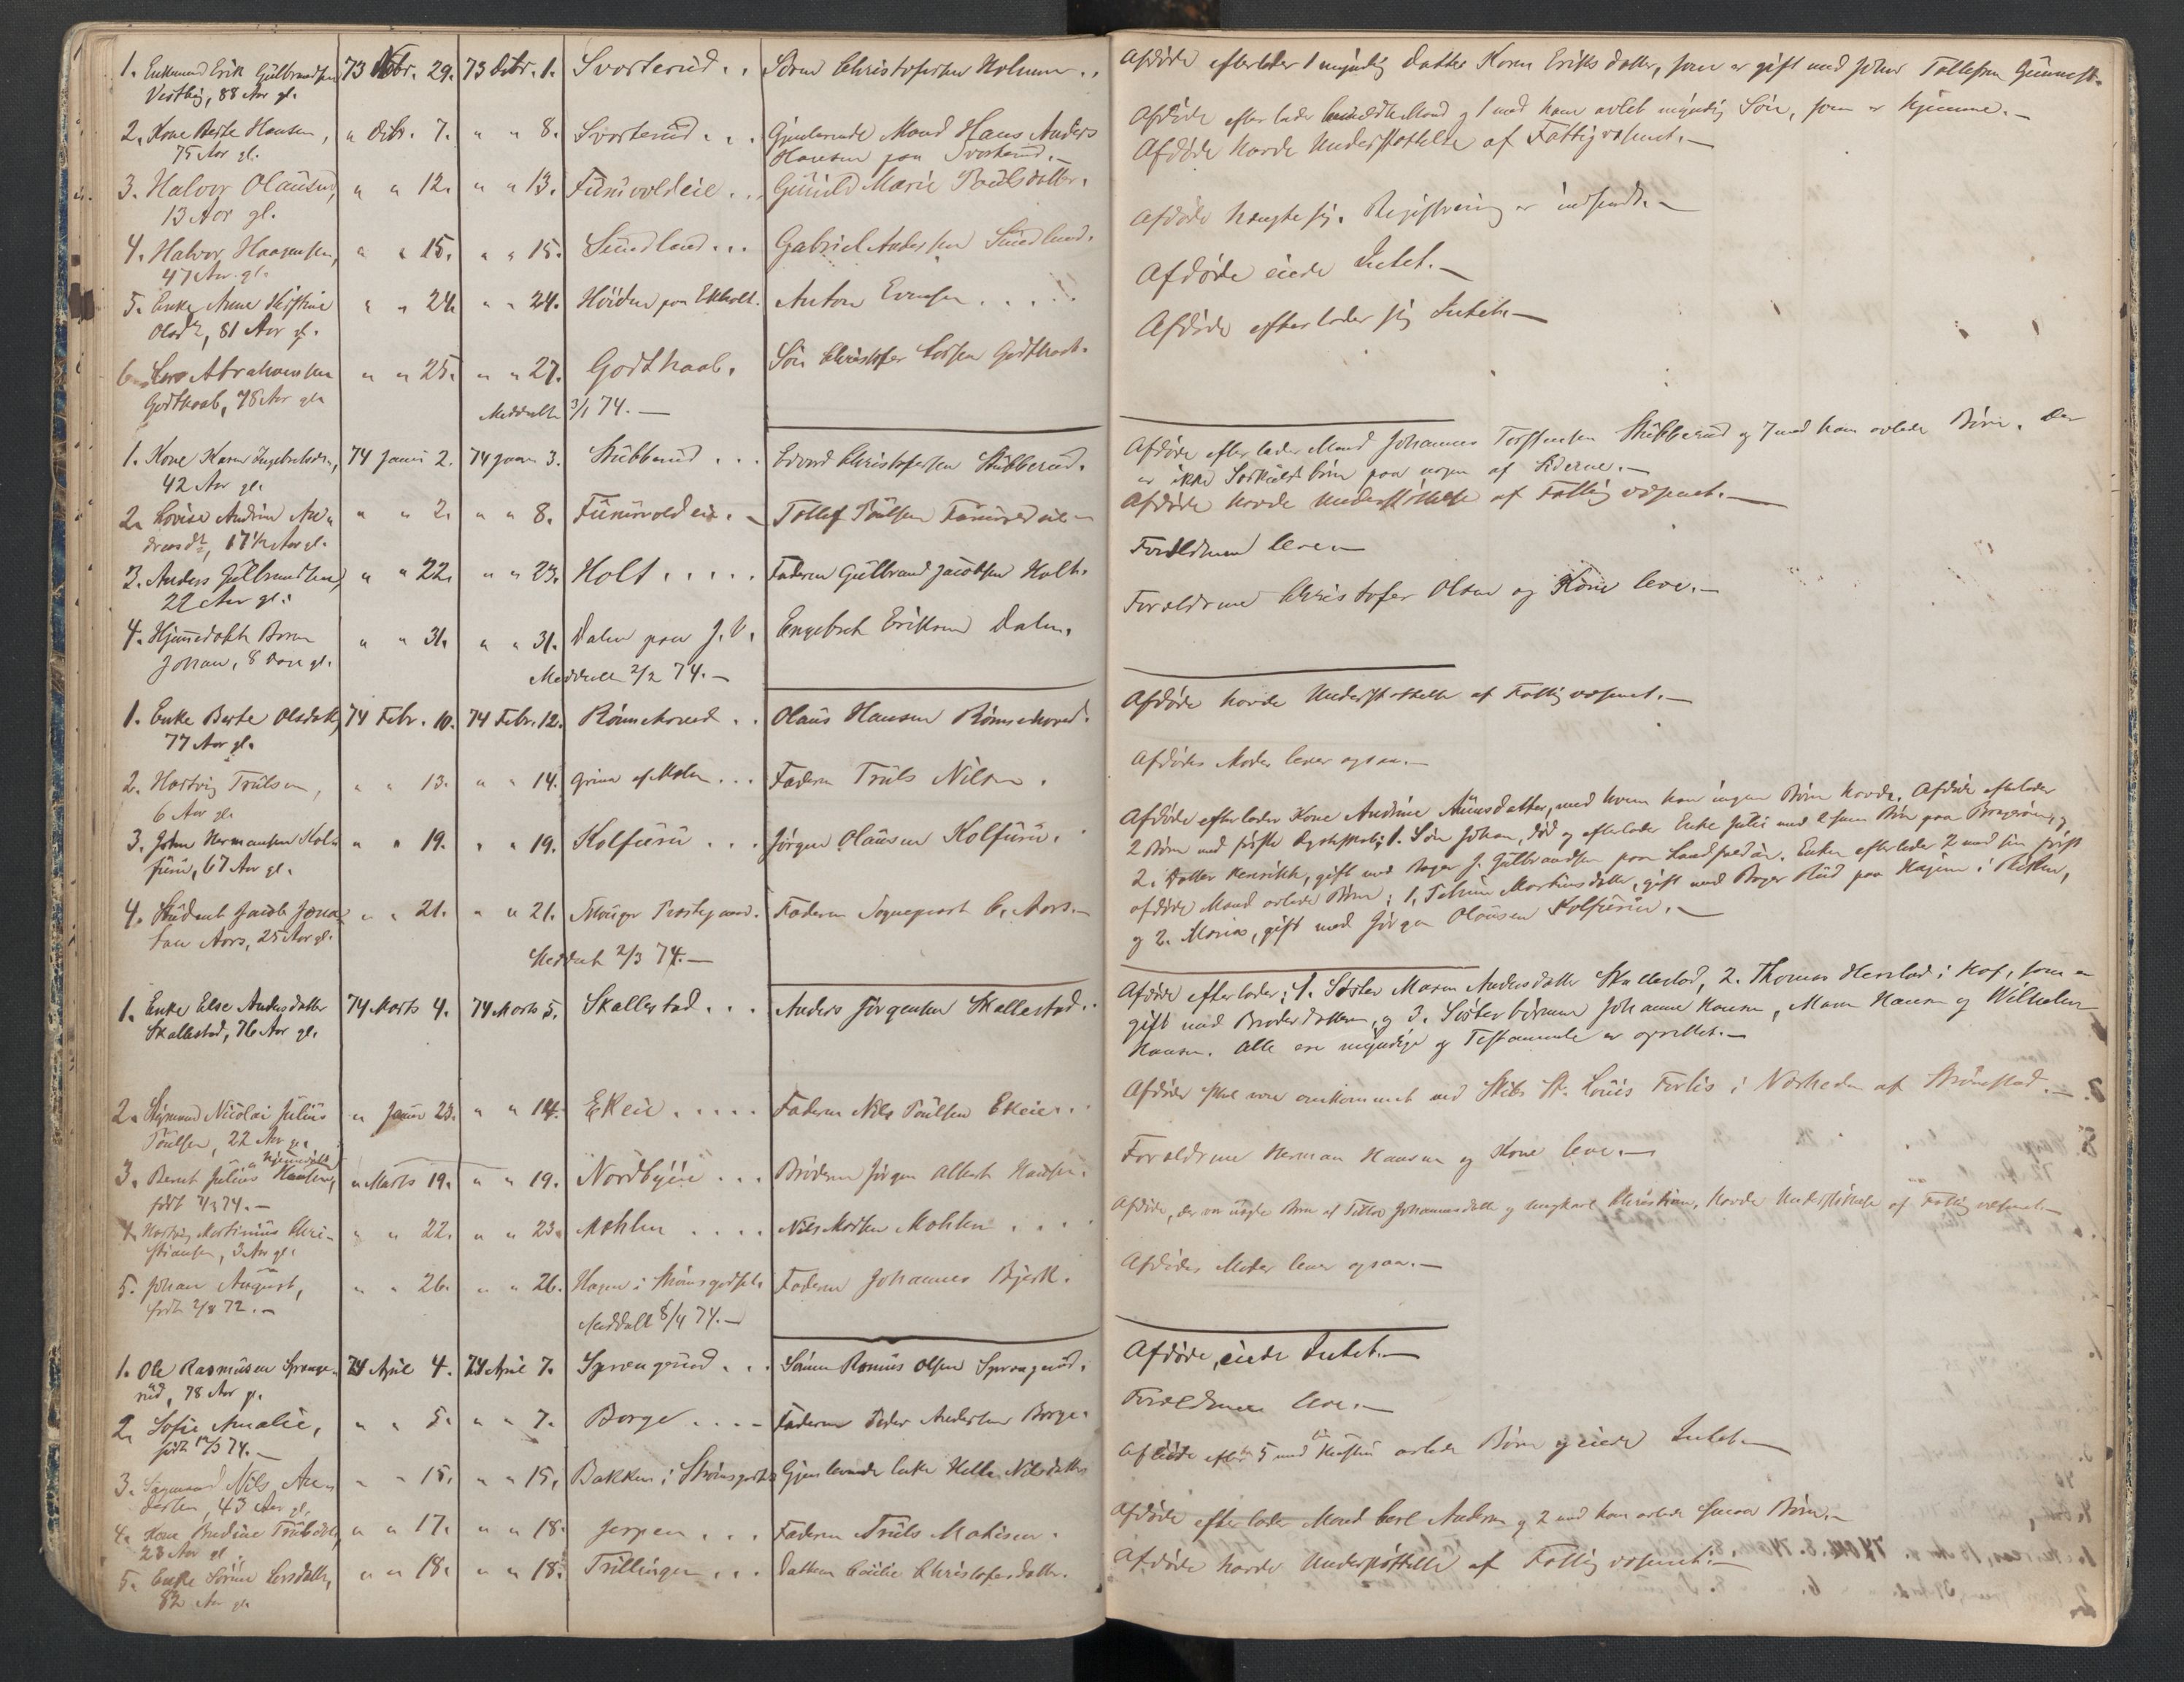 1. Enkemand Erik Gulbrandsen 73 Nbr. 29. 73 Dcbr. 1. Svorterud . . Søren Christofersen Holmen . . Afdøde efterlader 1 myndig Datter Karen Eriksdatter, som er gift med Johan Tollefsen
Vestby, 88 Aar gl.
2. Kone Berte Hansen, " Dcbr. 7. " " 8. Svorterud . . . Gjenlevende Mand Hans Anders Afdøde efterlader Mand og 1 med ham avlet myndig Søn, som er hjemme.
75 Aar gl. Hansen paa Svorterud. Afdøde havde Understøttelse af Fattigvæsenet.
3. Halvor Olausen, " " 12. " " 13. . . Gunild Marie Poulsdatter.
13 Aar gl. Afdøde hængte sig. Registrering er indsendt.
4. Halvor Haagensen, " " 15. " " 15. Sundland . . . Gabriel Andersen Sundland.
47 Aar gl. Afdøde eiede Intet.
5. Enke Anne Kirstine " " 24. " " 24. Høiden paa Ekholt. Anton Evensen . . . .
Olsdr, 81 Aar gl. Afdøde efterlader sig Intet.
6. Lars Abrahamsen " " 25. " " 27. Godthaab. Søn Christofer Larsen Godthaab.
Godthaab, 78 Aar gl.
Meddelt 3/1 74.
1. Kone Karen Ingebretsdr, 74 Januar 2. 74 Januar 3. Stubberud . . . Edvard Christofersen Stubberud. Afdøde efterlader Mand Johannes Torstensen Stubberud og 7 med ham avlede Børn. Der
42 Aar gl. er ikke Særkuldsbørn paa nogen af Siderne.
2. Lovise Andrine An- " " 2. " " 8. . Tollef Poulsen Afdøde havde Understøttelse af Fattigvæsenet.
dreasdr, 17 1/2 Aar gl.
3. Anders Gulbrandsen, " " 22. " " 23. Holt . . . . . Faderen Gulbrand Jacobsen Holt. Forældrene leve.
22 Aar gl.
4. Hjemmedøbt Barn " " 31. " " 31. Dalen paa J. V. Engebret Eriksen Dalen. Forældrene Christofer Olsen og Kone leve.
Johan, 8 Dage gl.
Meddelt 2/2 74.
1. Enke Berte Olsdatter, 74 Febr. 10. 74 Febr. 12. Rønnehoved . . Olaus Hansen Rønnehoved. Afdøde havde Understøttelse af Fattigvæsenet.
77 Aar gl.
2. Hartvig Trulsen, " " 13. " " 14. . . . Faderen Truls Nilsen. Afdødes Moder lever ogsaa.
6 Aar gl.
3. John Hermansen Kol- " " 19. " " 19. Kolfuru . . . Jørgen Olausen Kolfuru. Afdøde efterlader Kone Andrine Amundsdatter, med hvem han ingen Børn havde. Afdøde efterlader
furu, 67 Aar gl. 2 Børn med første Ægteskab; 1. Søn Johan, død og efterlader Enke Julie med Børn paa Bragernes, og
2. Datter Henrikke, gift med Bager J. Gulbrandsen paa Landfaldøen. Enken efterlader 2 med sin først
4. Student Jacob Jona- " " 21. " " 21. Prestegaard. Faderen Sogneprest C. Aars. afdøde Mand avlede Børn; 1. Martinsdatter, gift med Bager Rud paa i Røken,
tan Aars, 25 Aar gl. og 2. Maria, gift med Jørgen Olausen Kolfuru.
Meddelt 2/3 74.
1. Enke Else Andersdatter 74 Marts 4. 74 Marts 5. Skallestad . . . Anders Jørgensen Skallestad . Afdøde efterlader; 1. Søster Maren Andersdatter Skallestad, 2. Thomas i Hof, som er
Skallestad, 76 Aar gl. gift med Broderdatteren, og 3. Søsterbørnene Johanne Hansen, Maren Hansen og Wilhelm
Hansen. Alle ere myndige og Testamente er oprettet.
2. Styrmand Nicolai Julius " Januar 23. " " 14. Ekeie . . . . . Faderen Nils Poulsen Ekeie . . Afdøde skal være omkommet ved Skibet St. Louis Forlis i Nærheden af
Poulsen, 22 Aar gl.
3. Bernt Julius Hansen, hjemmedøbt " Marts 19. " " 19. Nordbyeie . . . Broderen Jørgen Albert Hansen. Forældrene Herman Hansen og Kone leve.
født 4/3 74.
4. Hartvig Martinius Chri- " " 22. " " 23. Mohlen . . . . Nils Madsen Mohlen . . . . Afdøde, der var uægte Barn af Johannesdatter og Ungkarl Christian, havde Understøttelse af Fattigvæsenet.
stiansen, 3 Aar gl.
5. Johan August, " " 26. " " 26. Hagen i Strømsgodset. Faderen Johannes Bjerk. Afdødes Moder lever ogsaa.
født 2/8 72.
Meddelt 8/4 74.
1. Ole Rasmusen Spræng- 74 April 4. 74 April 7. Sprængrud . . . Sønnen Rasmus Olsen Sprængrud. Afdøde eiede Intet.
rud, 78 Aar gl.
2. Sofie Amalie, " " 5. " " 7. Borge . . . . Faderen Peder Andersen Borge. Forældrene leve.
født 12/3 74.
3. Nils An- " " 15. " " 15. Bakken i Strømsgodset Gjenlevende Enke Helle Nilsdatter Afdøde efterl. 5 med Hustru avlede Børn og eiede Intet.
dersen, 43 Aar gl.
4. Kone Trulsdatter, " " 17. " " 18. Jerpen . . . Faderen Truls Mathisen. Afdøde efterlader Mand Carl Andersen og 2 med ham avlede smaa Børn.
23 Aar gl.
5. Enke Sørine Larsdatter, " " 18. " " 18. Trillingen . . . Datteren Cecilie Christofersdatter. Afdøde havde Understøttelse af Fattigvæsenet.
82 Aar gl.